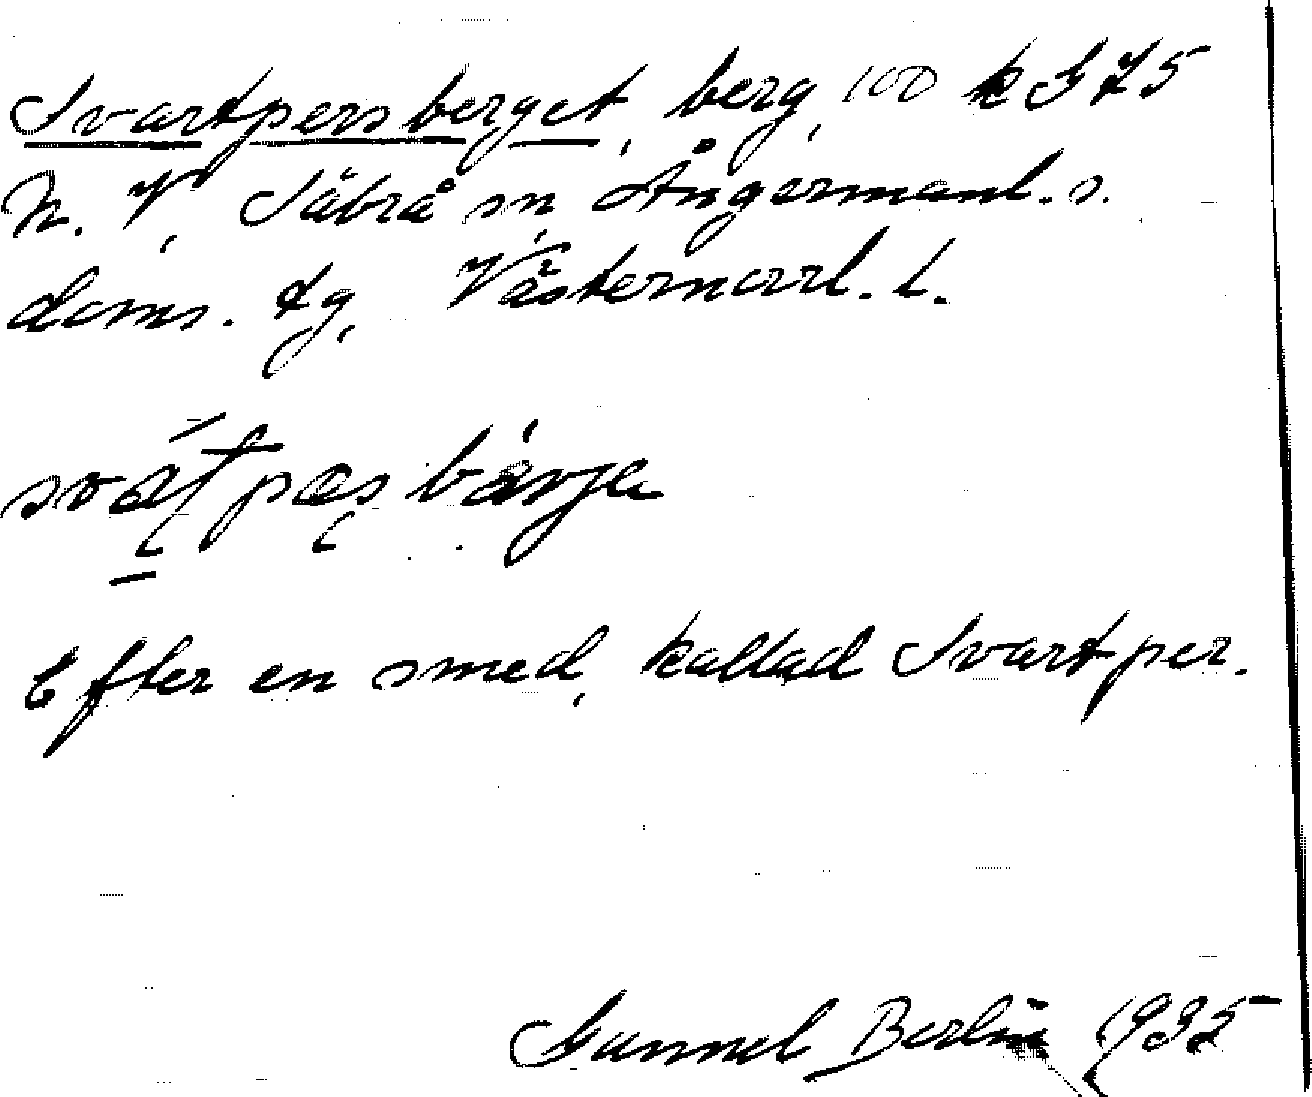 Svartpersberget, berg, 100 k G 75
N. V, Säbrå sn, Ångermanl. s.
doms. tg, Västernorrl. l.
Efter en smed, kallad Svartper.
Gunnel Berlin 1935